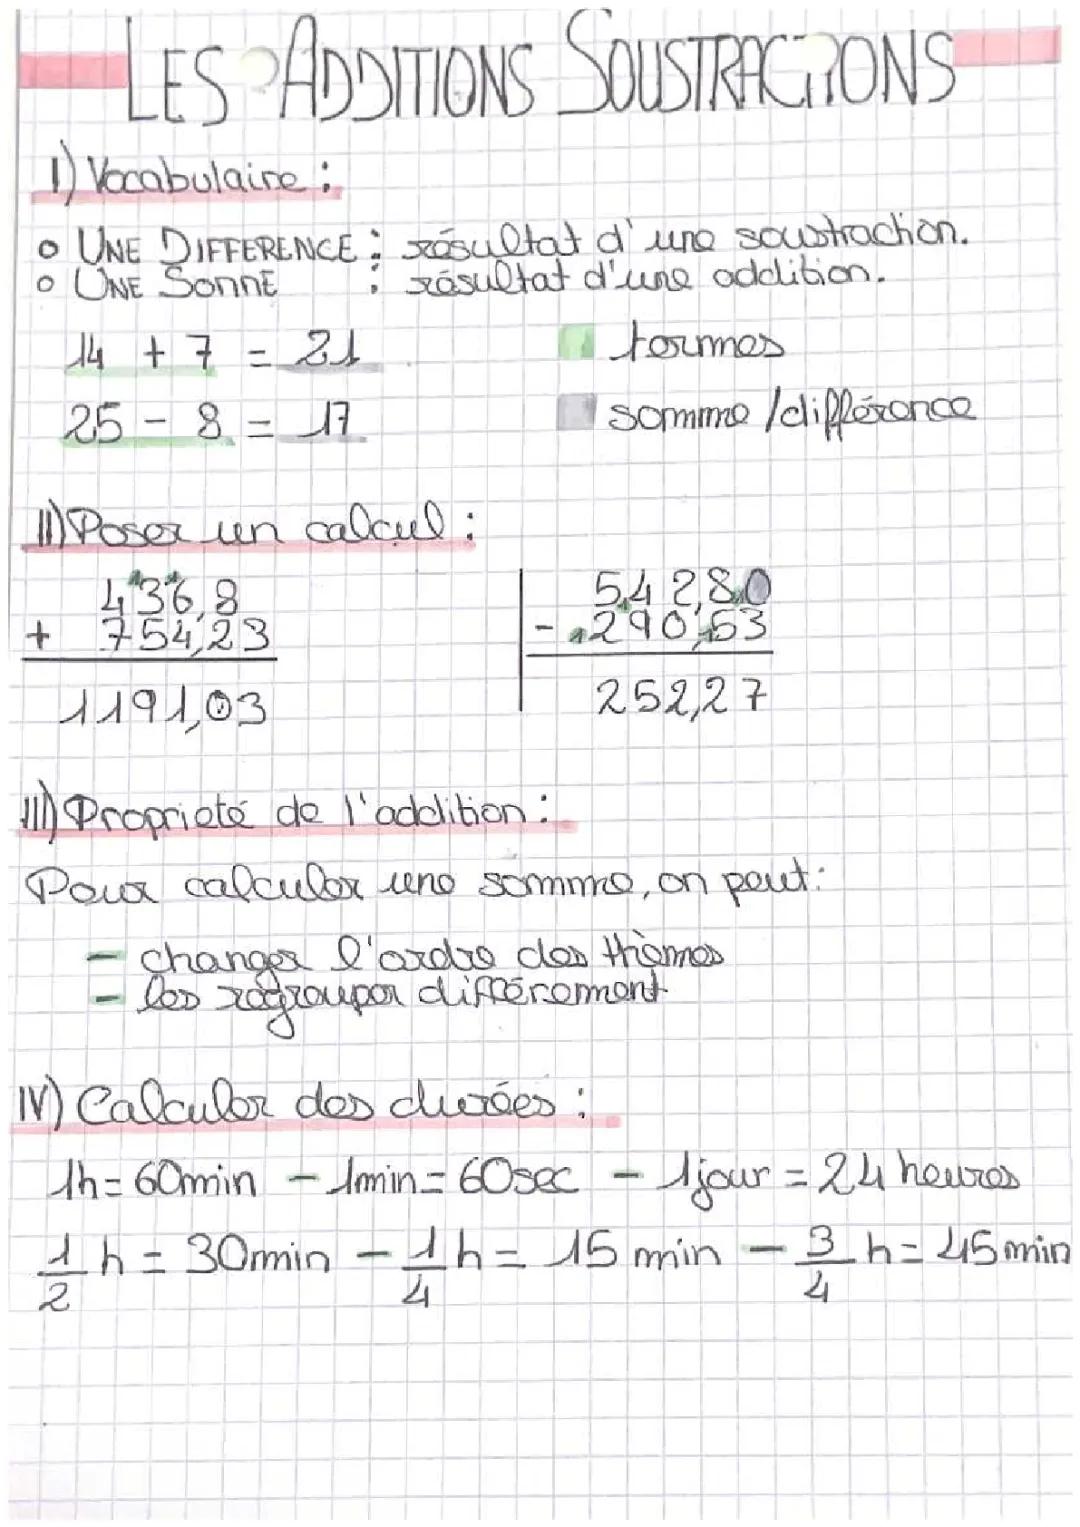 LES ADDITIONS SOUSTRACTIONS
I) Vocabulaire :
o UNE DIFFERENCE : résultat d'une soustraction.
o UNE SOMME : résultat d'une addition.
14 + 7 = 21 termes
25 - 8 = 17 somme/différence
II) Poser un calcul :
436,8 542,80
+ 754,23 - 290,53
1191,03 252,27
III) Proprieté de l'addition :
Pour calculer une somme, on peut :
- changer l'ordre des thèmes
- les regrouper différement
IV) Calculer des durées :
1h = 60min - 1min = 60sec - 1jour = 24 heures
1/2 h = 30min - 1/4 h = 15 min - 3/4 h = 45min